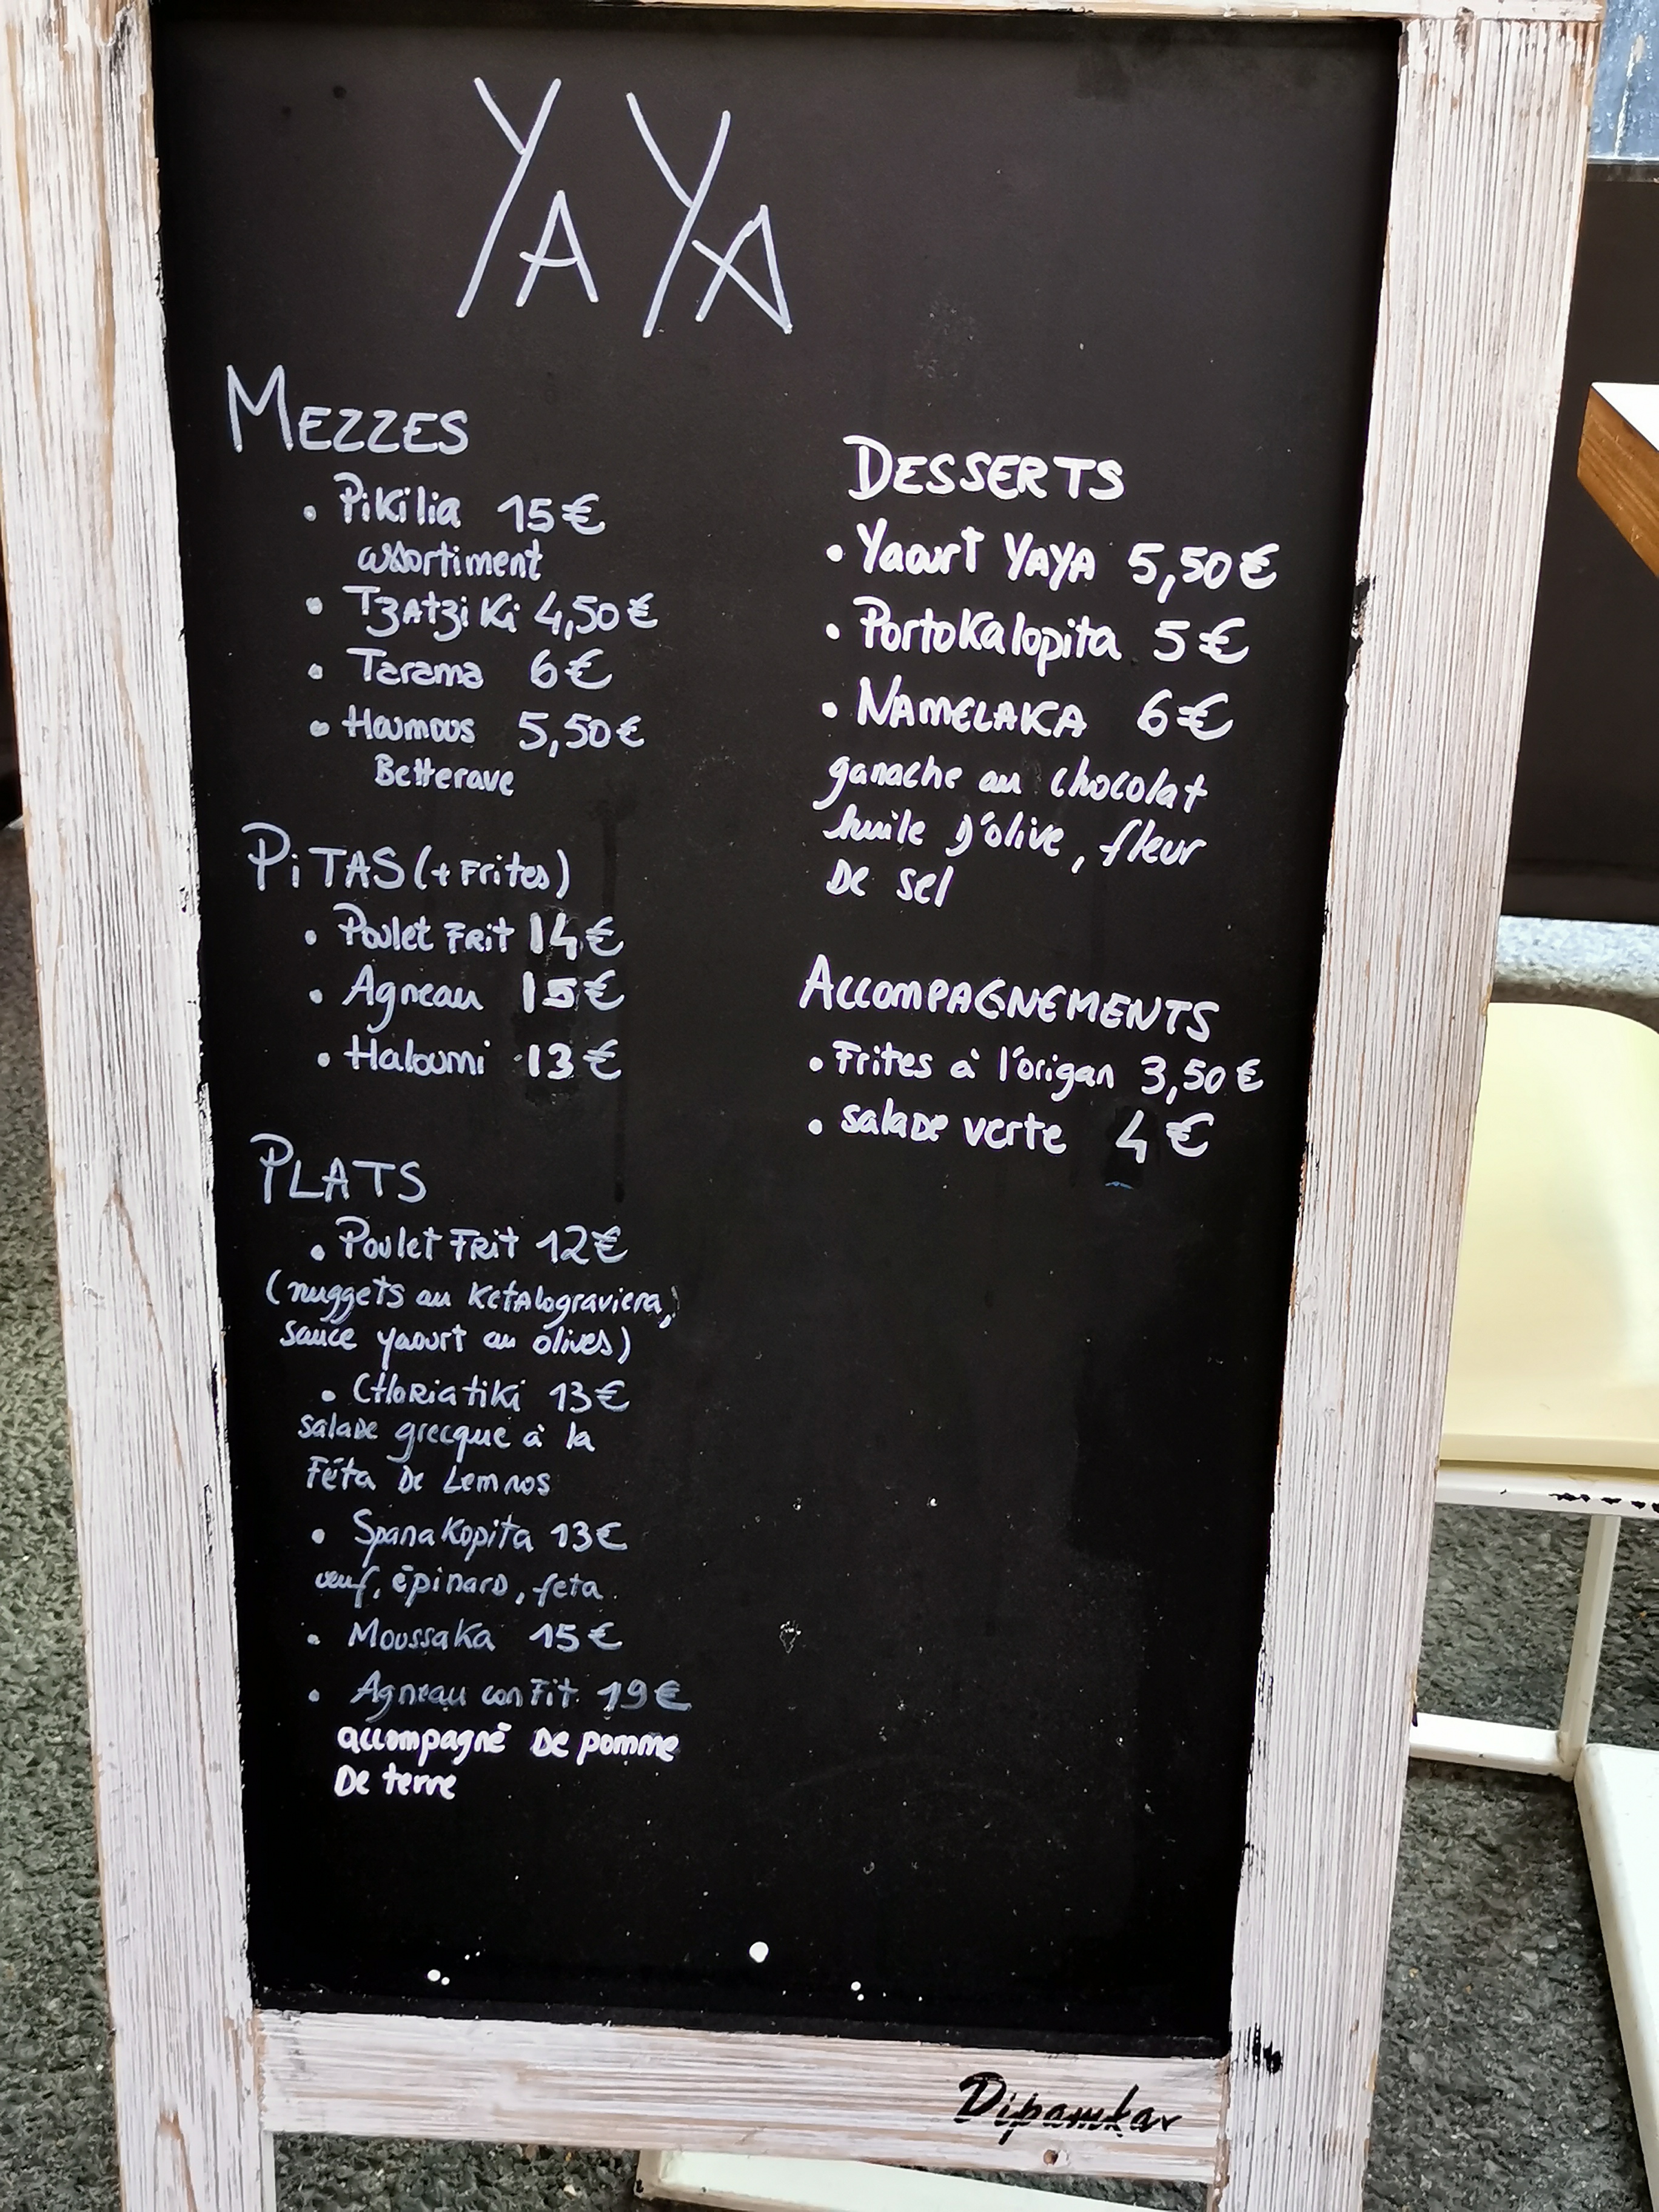 YAYA
MEZZES
• Pikilia 15€
assortiment
• Tzatziki 4,50€
• Tarama 6€
• Houmous 5,50€
Betterave
PiTAS (+ Frites)
• Poulet Frit 14€
• Agneau 15€
• Haloumi 13€
PLATS
• Poulet Frit 12€
(nuggets au Kefalograviera,
sauce yaourt au olives)
• CHoriatiki 13€
salade grecque à la
Féta De Lemnos
• Spanakopita 13€
œuf, épinard, feta
• Moussaka 15€
• Agneau confit 19€
accompagné De pomme
De terre
DESSERTS
• Yaourt YAYA 5,50€
• Portokalopita 5€
• NAMELAKA 6€
ganache au chocolat
huile D'olive, fleur
De sel
ACCOMPAGNEMENTS
• Frites à l'origan 3,50€
• salade verte 4€
Dipamkar